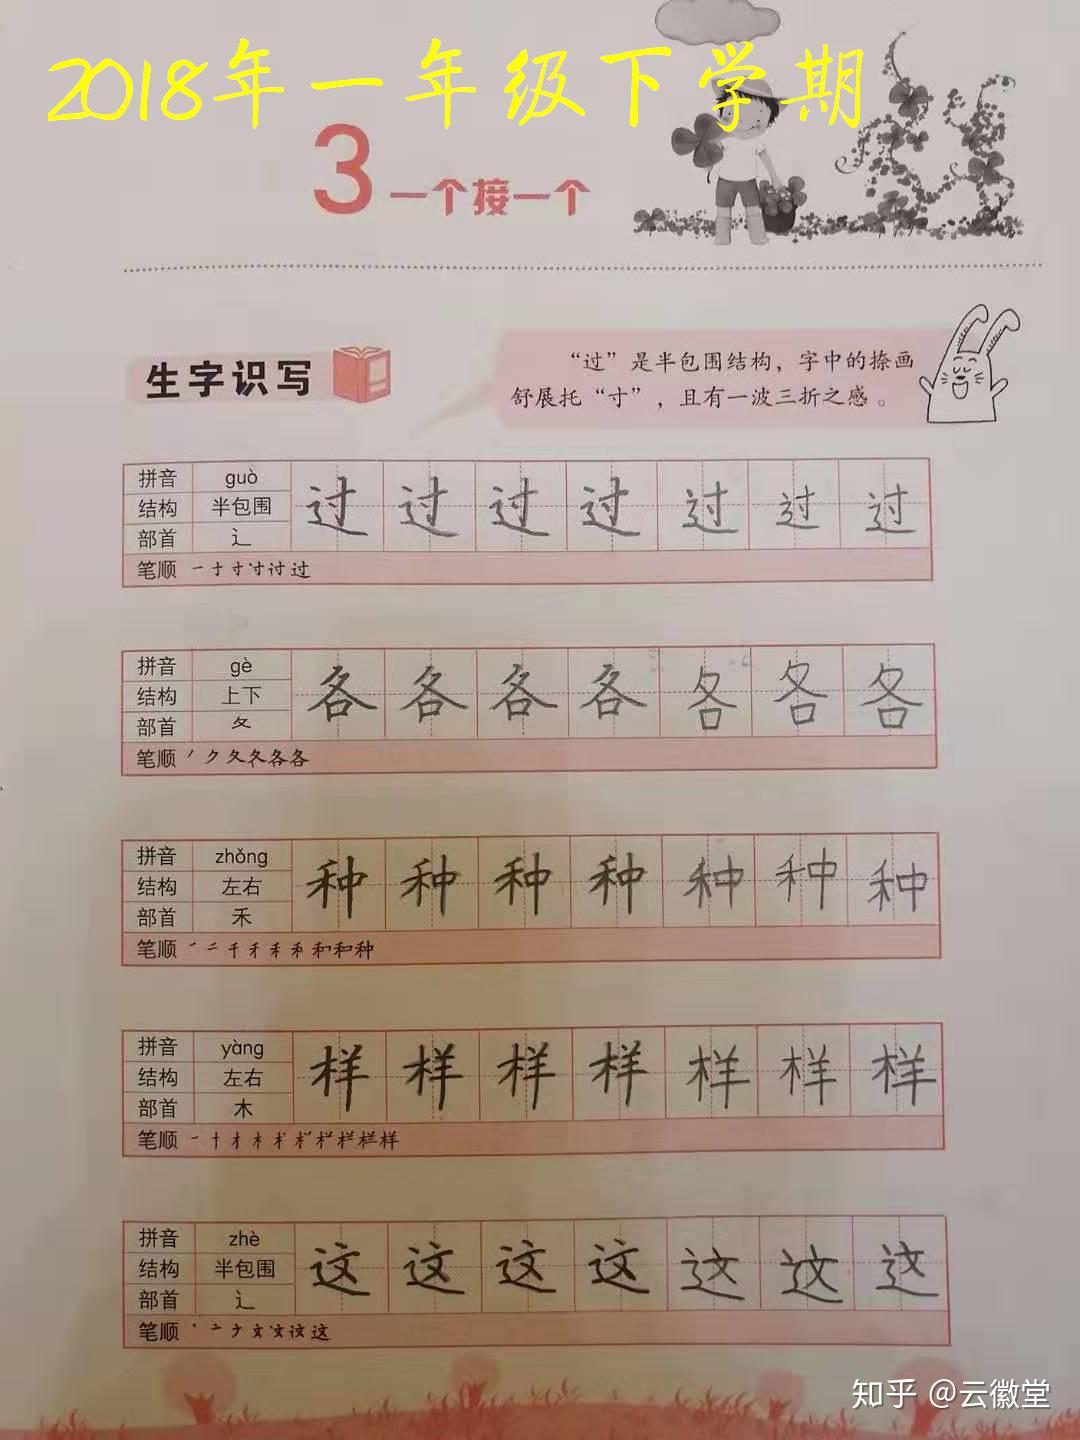 2018年一年级下学期
3 一个接一个
生字识写
“过”是半包围结构，字中的捺画
舒展托“寸”，且有一波三折之感。
拼音 guò
结构 半包围
部首 辶
过 过 过 过 过 过 过
笔顺 一 寸 寸 讨 过
拼音 gè
结构 上下
部首 夂
各 各 各 各 各 各 各
笔顺 丿 ク 夂 冬 各 各
拼音 zhǒng
结构 左右
部首 禾
种 种 种 种 种 种 种
笔顺 禾 和 种
拼音 yàng
结构 左右
部首 木
样 样 样 样 样 样 样
笔顺 一 十 才 木 栏 样
拼音 zhè
结构 半包围
部首 辶
这 这 这 这 这 这 这
笔顺 丶 亠 文 这
知乎 @云徽堂